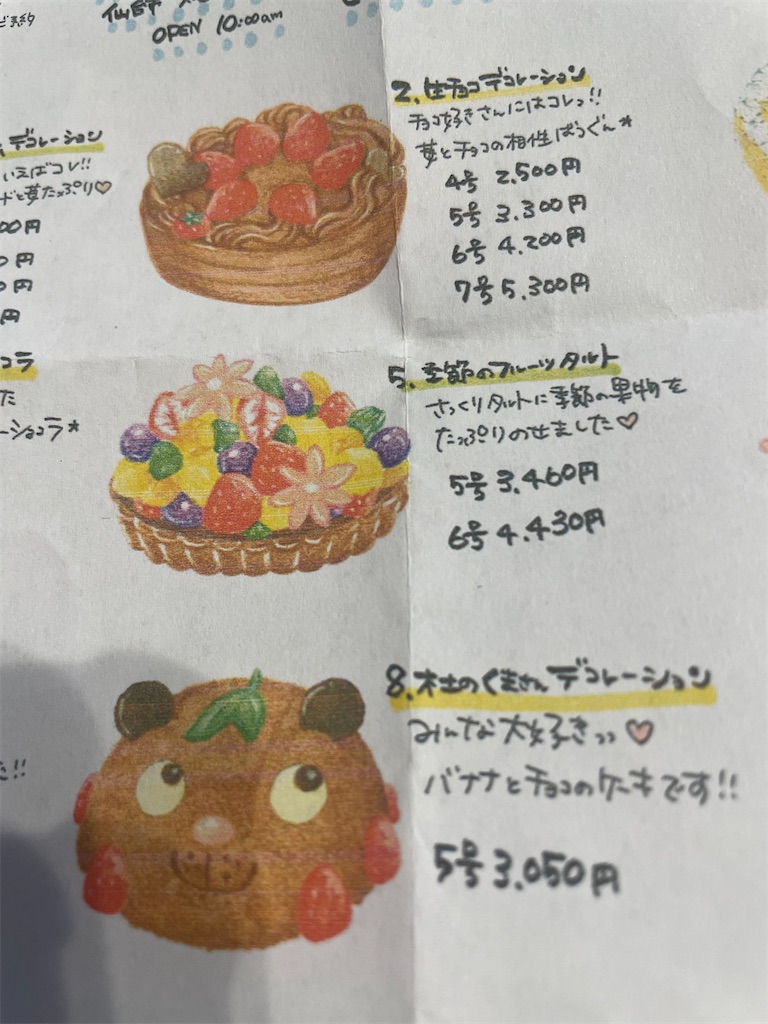 ご予約
仙台市
OPEN 10:00am
デコレーション
いえばコレ!!
と苺たっぷり♡
00円
円
円
円
コラ
た
ーショコラ*
た!!
2. 生チョコデコレーション
チョコ好きさんにはコレっ!!
苺とチョコの相性ばつぐん*
4号 2.500円
5号 3.300円
6号 4.200円
7号 5.300円
5. 季節のフルーツタルト
さっくりタルトに季節の果物を
たっぷりのせました♡
5号 3.460円
6号 4.430円
8. 杜のくまさんデコレーション
みんな大好きっっ♡
バナナとチョコのケーキです!!
5号 3.050円